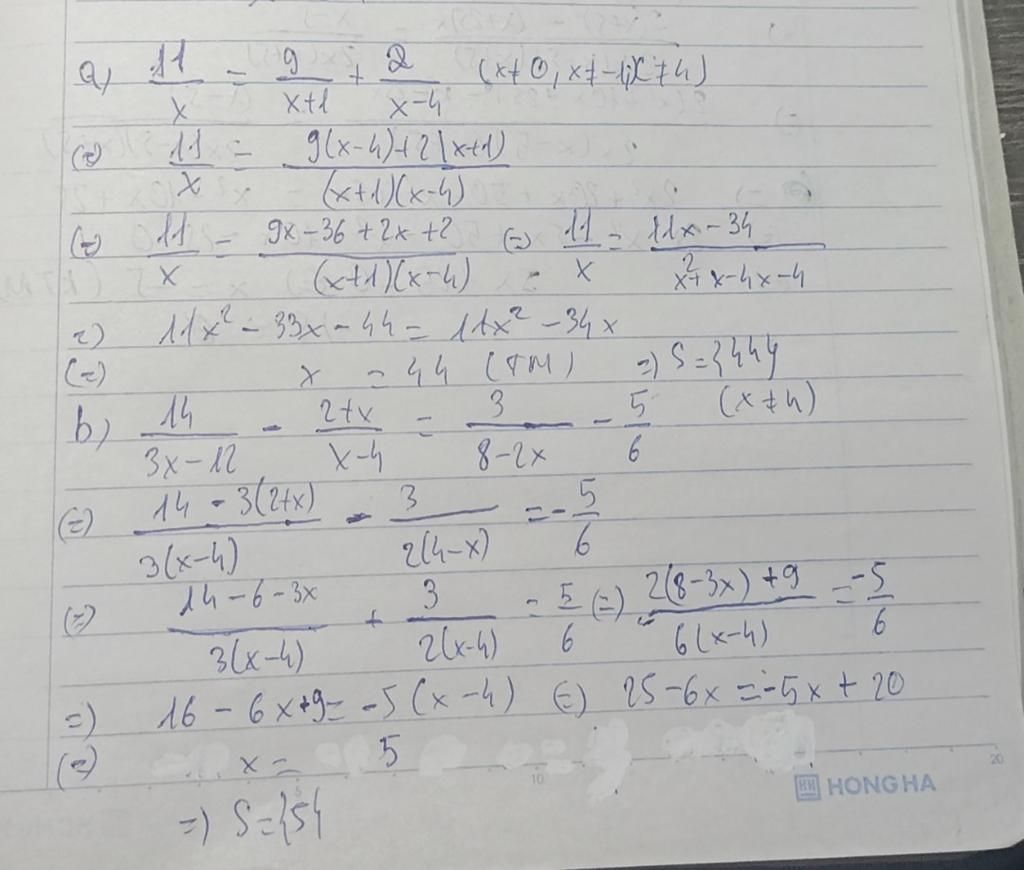 a) 11/x = 9/(x+1) + 2/(x-4) (x≠0, x≠-1; x≠4)
(=) 11/x = (9(x-4)+2(x+1))/((x+1)(x-4))
(=) 11/x = (9x-36+2x+2)/((x+1)(x-4)) (=) 11/x = (11x-34)/(x²+x-4x-4)
=) 11x² - 33x - 44 = 11x² - 34x
(=) x = 44 (TM) =) S={44}
b) 14/(3x-12) - (2+x)/(x-4) = 3/(8-2x) - 5/6 (x≠4)
(=) (14 - 3(2+x))/(3(x-4)) - 3/(2(4-x)) = -5/6
(=) (14-6-3x)/(3(x-4)) + 3/(2(x-4)) = 5/6 (=) (2(8-3x)+9)/(6(x-4)) = -5/6
=) 16 - 6x+9 = -5(x-4) (=) 25-6x = -5x+20
(=) x = 5
=) S={5}
10 20
HONG HA